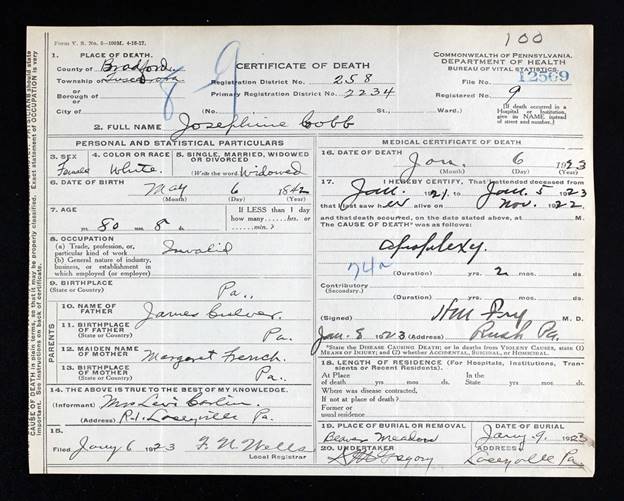 100
Form V. S. No. 5—100M. 4-16-17.
1. PLACE OF DEATH.
County of Bradford
Township of Tuscarora
or
Borough of
or
City of
8 9
CERTIFICATE OF DEATH
Registration District No. 258
Primary Registration District No. 2234
(No. St., Ward.)
COMMONWEALTH OF PENNSYLVANIA.
DEPARTMENT OF HEALTH
BUREAU OF VITAL STATISTICS.
File No. 12509
Registered No. 9
[If death occurred in a Hospital or Institution, give its NAME instead of street and number.]
2. FULL NAME Josephine Cobb
PERSONAL AND STATISTICAL PARTICULARS
3. SEX Female
4. COLOR OR RACE White
5. SINGLE, MARRIED, WIDOWED OR DIVORCED (Write the word) Widowed
6. DATE OF BIRTH May 6 1842
(Month) (Day) (Year)
7. AGE 80 yrs. 8 mos. ds.
If LESS than 1 day how many hrs. or min.?
8. OCCUPATION
(a) Trade, profession, or, particular kind of work Invalid
(b) General nature of industry, business, or establishment in which employed (or employer)
9. BIRTHPLACE
(State or Country) Pa.
PARENTS
10. NAME OF FATHER James Culver
11. BIRTHPLACE OF FATHER
(State or Country) Pa.
12. MAIDEN NAME OF MOTHER Margaret French
13. BIRTHPLACE OF MOTHER
(State or Country) Pa.
14. THE ABOVE IS TRUE TO THE BEST OF MY KNOWLEDGE.
(Informant) Mrs Levi
(Address) R.1. Laceyville Pa.
15.
Filed Jany 6 1923 F. N. Wells
Local Registrar
MEDICAL CERTIFICATE OF DEATH
16. DATE OF DEATH
Jan. 6 1923
(Month) (Day) (Year)
17. I HEREBY CERTIFY, That I attended deceased from
Jan. 1921 to Jan 5 1923
that I last saw her alive on Nov. 1922
and that death occurred, on the date stated above, at M.
The CAUSE OF DEATH* was as follows:
Apoplexy
74a
(Duration) yrs. 2 mos. ds.
Contributory
(Secondary.)
(Duration) yrs. mos. ds.
(Signed) HM Fry M. D.
Jan. 8 1923 (Address) Rush Pa.
*State the DISEASE CAUSING DEATH; or in deaths from VIOLENT CAUSES, state (1) MEANS OF INJURY; and (2) whether ACCIDENTAL, SUICIDAL, OR HOMICIDAL.
18. LENGTH OF RESIDENCE (For Hospitals, Institutions, Transients or Recent Residents).
At Place of death yrs mos. ds. In the State yrs. mos. ds.
Where was disease contracted,
if not at place of death?
Former or
usual residence
19. PLACE OF BURIAL OR REMOVAL Beaver Meadow
DATE OF BURIAL Jany. 9. 1923
20. UNDERTAKER Gregory
ADDRESS Laceyville Pa.